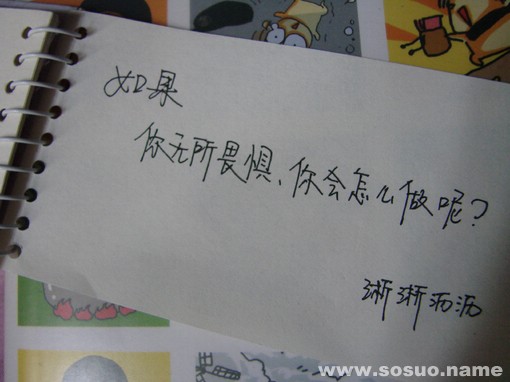 如果
你无所畏惧、你会怎么做呢？
淅淅沥沥
www.sosuo.name